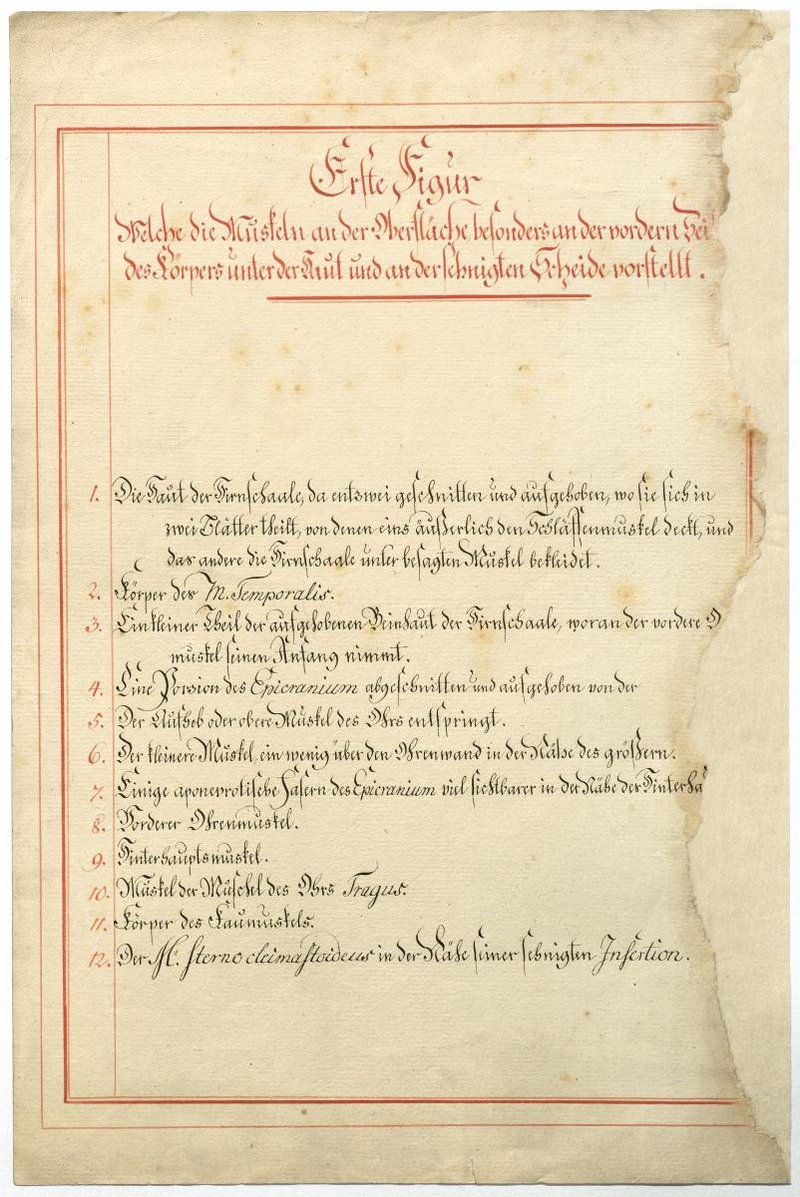 Erste Figur
Welche die Muskeln an der Oberfläche, besonders an der vordern Sei
des Körpers unter der Haut und an der sehnigten Scheide vorstellt.
1. Die Haut der Hirnschaale, da entzwei geschnitten und aufgehoben, wo sie sich in
zwei Blätter theilt, von denen eins äußerlich den Schläffenmuskel deckt, und
das andere die Hirnschaale unter besagten Muskel bekleidet.
2. Körper des M. Temporalis.
3. Ein kleiner Theil der aufgehobenen Beinhaut der Hirnschaale, woran der vordere O
muskel seinen Anfang nimmt.
4. Eine Porzion des Epicranium abgeschnitten und aufgehoben von der
5. Der Aufheb oder obere Muskel des Ohrs entspringt.
6. Der kleinere Muskel, ein wenig über den Ohrenwand in der Nähe des größern.
7. Einige aponevrotische Fasern des Epicranium viel sichtbarer in der Nähe der Hinterha
8. Vorderer Ohrenmuskel.
9. Hinterhauptsmuskel.
10. Muskel der Muschel des Ohrs Tragus.
11. Körper des Kaumuskels.
12. Der M. sterno cleimastoideus in der Nähe seiner sehnigten Insertion.